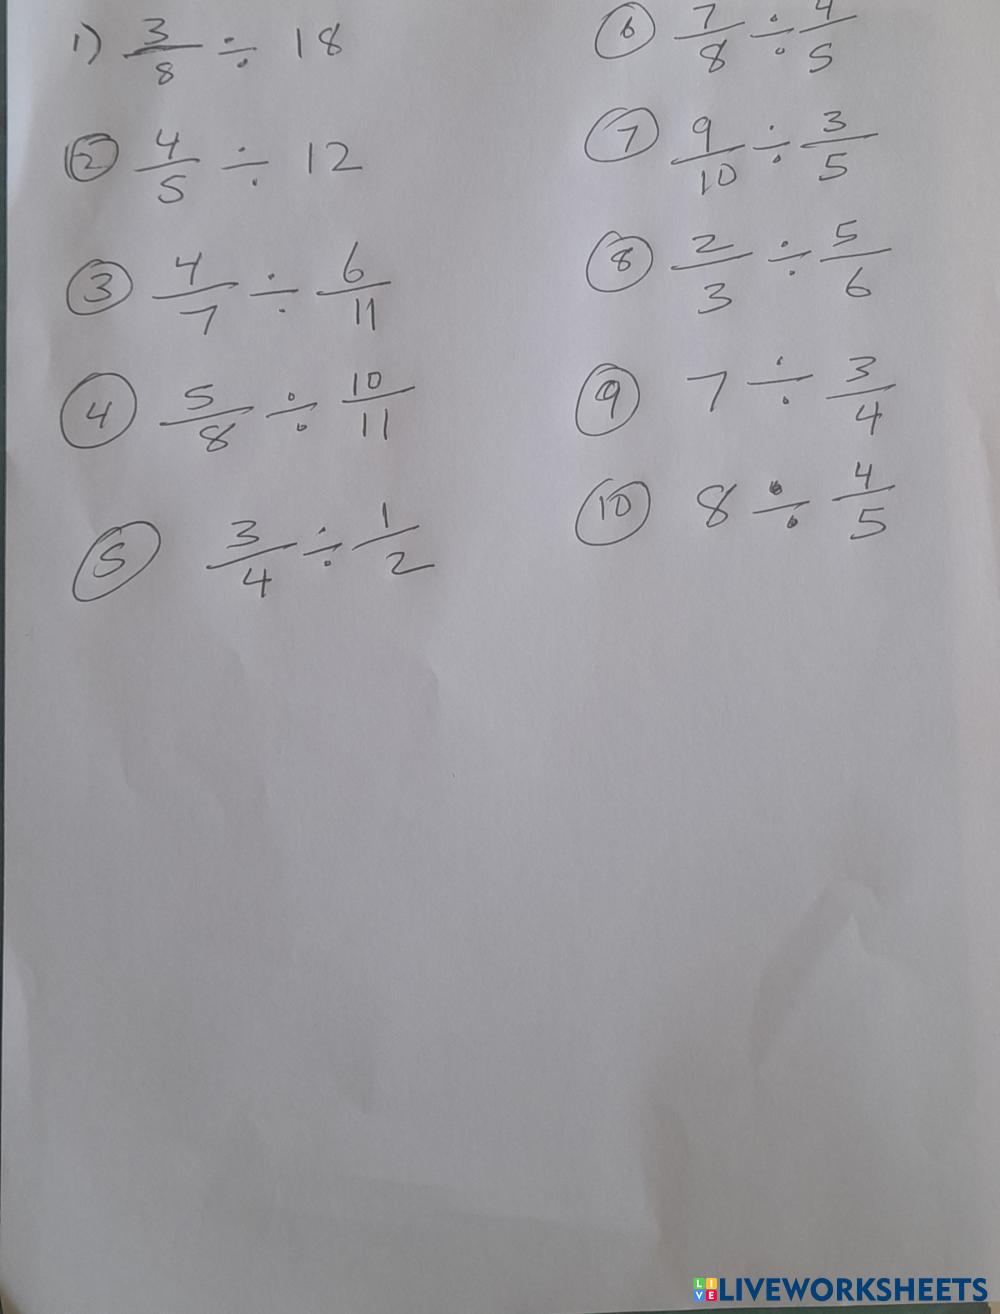 1) 3/8 ÷ 18
2 4/5 ÷ 12
3 4/7 ÷ 6/11
4 5/8 ÷ 10/11
5 3/4 ÷ 1/2
6 7/8 ÷ 4/5
7 9/10 ÷ 3/5
8 2/3 ÷ 5/6
9 7 ÷ 3/4
10 8 ÷ 4/5
LIVEWORKSHEETS